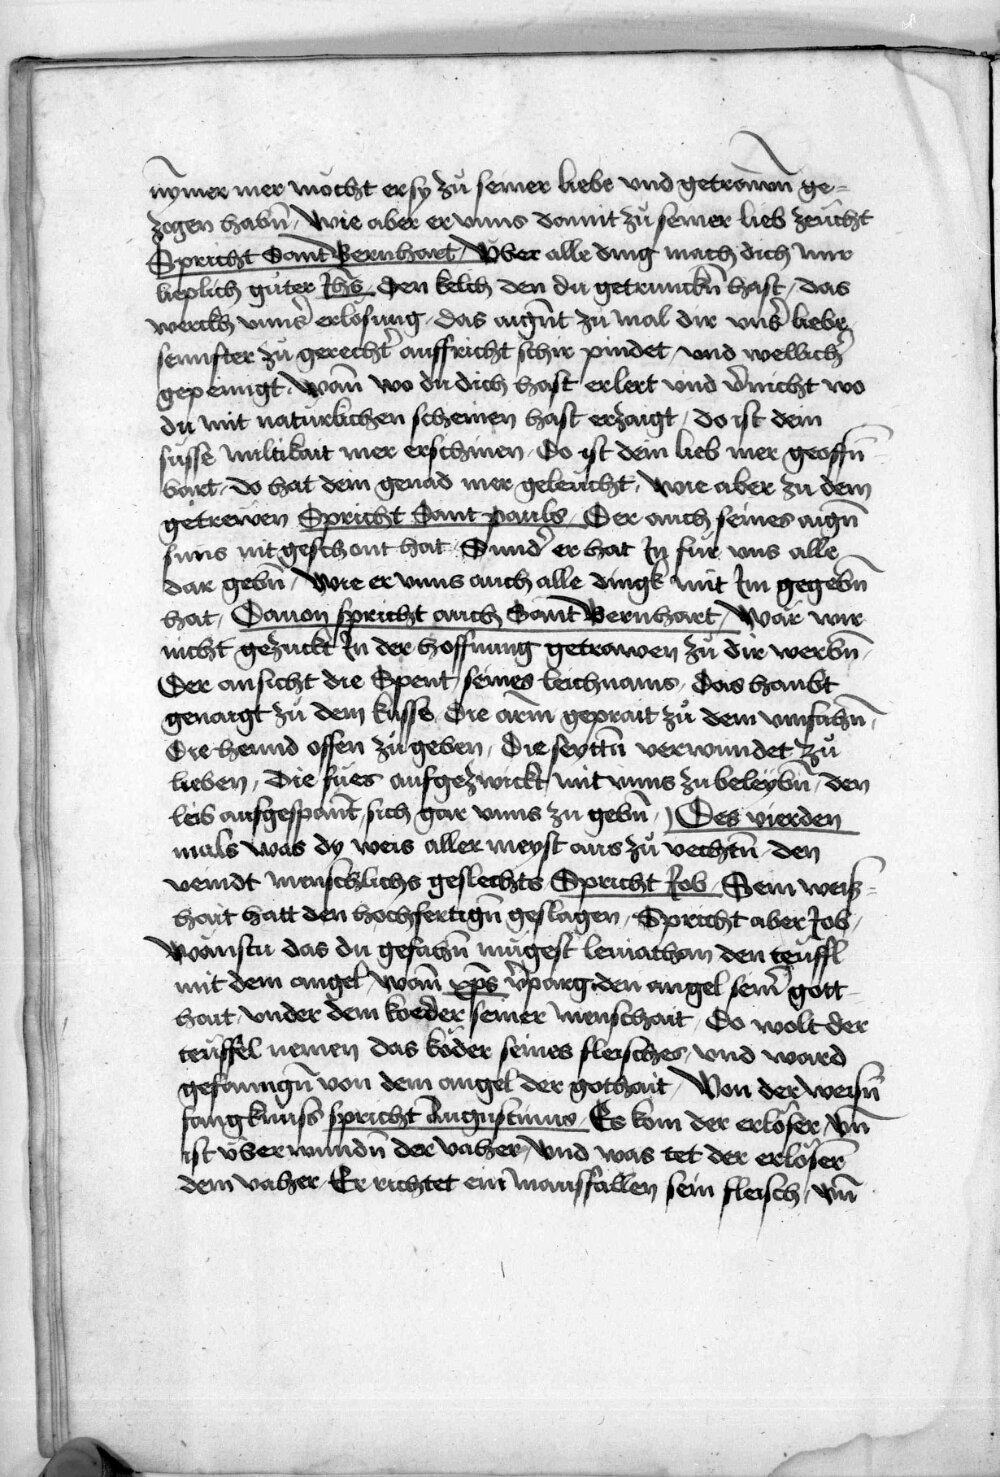 nymer mer möcht er sy zu seiner liebe vnd getrawn̄ ge=
zogen habn̄ / Wie aber er vnns damit zu seiner lieb zeücht
Spricht Sant Bernhart / Vber alle ding mach dich mir
lieplich güter Jhs̄ Den kelch den du getrunckn̄ hast / das
werckh vnns̄ erlösung / das aign̄t zu mal dir vns̄ liebe
sennfter zu gerecht̄ auffricht schir pindet / vnd wellich̄
gepeinigt / Wan̄ wo du dich hast erlert vnd v̄nicht wo
du mit natürlichen scheinen hast erzaigt / do ist dein
süsse miltikait mer erschinen / Do ist dein lieb mer geoffn̄
bart / do hat dein genad mer geleücht / Wie aber zu dem
getrewen Spricht Sant pauls / Der auch seines aign̄
suns nit geschont hat / Sunder̄ er hat In für vns alle
dar gebn̄ / Wie er vnns auch alle dingk mit Im gegebn̄
hat / Dauon spricht auch Sant Bernhart / Wär wir
nicht gezuckt In der hoffnung getrawen zu dir werbn̄ /
Der ansicht die Spent seines leichnams / Das haubt
genaigt zu dem kusse Die arm̄ geprait zu dem vmfahn̄ /
Die hennd offen zu geben / Die seyttn̄ verwundet zu
lieben / Die füs aufgezwickt mit vnns zu beleybn̄ / den
leib aufgespan̄t / sich gar vnns zu gebn̄ / Des vierden
mals was dy weis aller meyst aus zu vechtn̄ den
veindt menschlichs geslechts Spricht Job / Sein weis=
hait hatt den hochfertign̄ geslagen / Spricht aber Job /
Wänstu das du gefahn̄ mügest leuiathan den teüffl
mit dem angel / Wan̄ xp̄s v̄parg den angel sein̄ gott
hait / vnder dem koeder seiner menschait / Do wolt der
teüffel nemen das köder seines fleisches / vnd ward
gefanngn̄ von dem angel der gothait / Von der weisn̄
fangknuss spricht Augustinus / Es kom der erlöser / vn̄
ist vberwundn̄ der vaher / Vnd was tet der erlöser
dem vaher / Er richtet ein mausfallen sein fleisch / vn̄